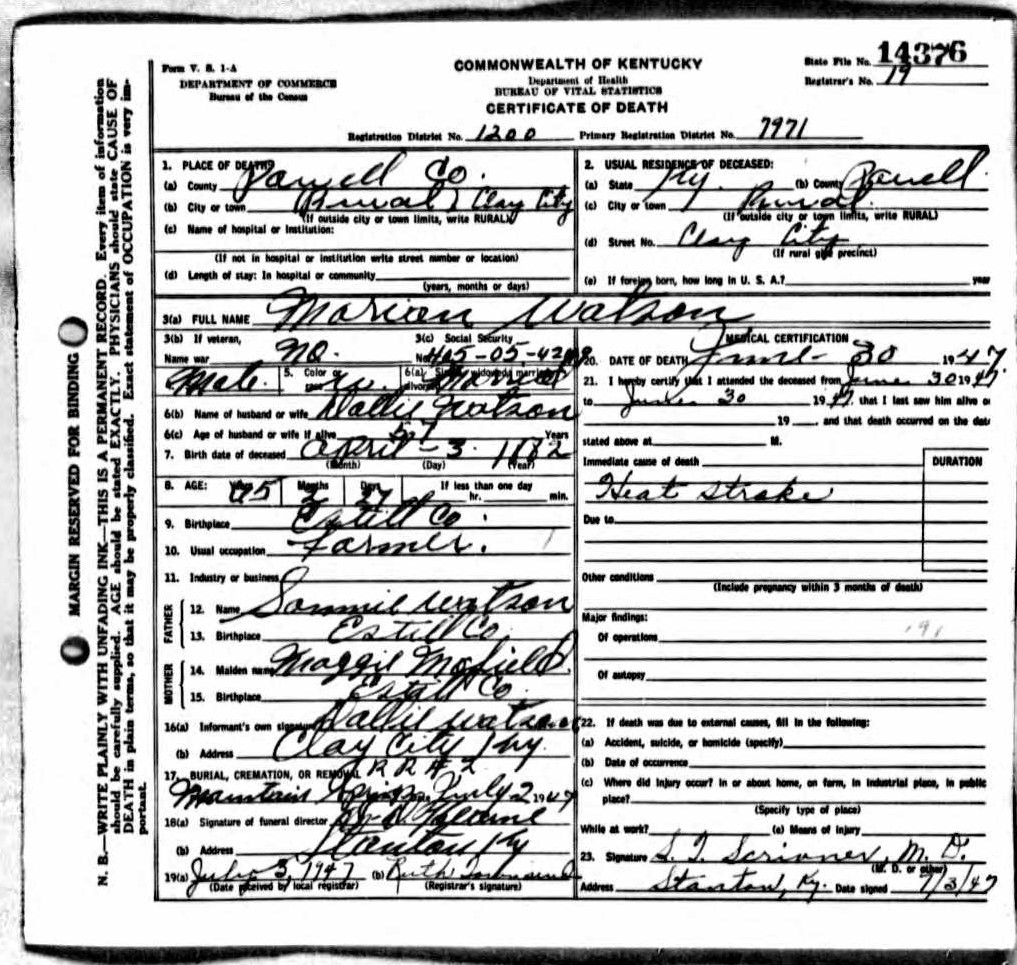 Form V. S. 1-A
DEPARTMENT OF COMMERCE
Bureau of the Census
COMMONWEALTH OF KENTUCKY
Department of Health
BUREAU OF VITAL STATISTICS
CERTIFICATE OF DEATH
State File No. 14376
Registrar's No. 19
Registration District No. 1200 Primary Registration District No. 7971
1. PLACE OF DEATH:
(a) County Powell Co.
(b) City or town Rural Clay City
(If outside city or town limits, write RURAL)
(c) Name of hospital or Institution:
(If not in hospital or institution write street number or location)
(d) Length of stay: In hospital or community
(years, months or days)
2. USUAL RESIDENCE OF DECEASED:
(a) State Ky. (b) County Powell
(c) City or town Rural
(If outside city or town limits, write RURAL)
(d) Street No. Clay City
(If rural give precinct)
(e) If foreign born, how long in U. S. A.? year
3(a) FULL NAME Marion Watson
3(b) If veteran,
Name war no.
3(c) Social Security
No. 405-05-42
Male 5. Color or race w. 6(a) Single, widowed, married, divorced Married
6(b) Name of husband or wife Dallie Watson
6(c) Age of husband or wife if alive 57 Years
7. Birth date of deceased April - 3 1882
(Month) (Day) (Year)
8. AGE: Years 65 Months 2 Days 27 If less than one day
hr. min.
9. Birthplace Estill Co.
10. Usual occupation Farmer.
11. Industry or business
FATHER
12. Name Sammie Watson
13. Birthplace Estill Co
MOTHER
14. Maiden name Maggie
15. Birthplace Estill Co
16(a) Informant's own signature Dallie Watson
(b) Address Clay City Ky.
R R # 2
17. BURIAL, CREMATION, OR REMOVAL
Mountain Springs July 2 1947
18(a) Signature of funeral director
(b) Address Stanton Ky
19(a) July 3, 1947 (b) Ruth Townsend
(Date received by local registrar) (Registrar's signature)
MEDICAL CERTIFICATION
20. DATE OF DEATH June - 30 1947
21. I hereby certify that I attended the deceased from June 30 1947
to June 30 1947 that I last saw him alive o
19 , and that death occurred on the date
stated above at M.
Immediate cause of death DURATION
Heat stroke
Due to
Other conditions
(Include pregnancy within 3 months of death)
Major findings:
Of operations 191
Of autopsy
22. If death was due to external causes, fill in the following:
(a) Accident, suicide, or homicide (specify)
(b) Date of occurrence
(c) Where did injury occur? In or about home, on farm, in industrial place, in public
place?
(Specify type of place)
While at work? (e) Means of injury
23. Signature S. T. Scrivner, M. D.
(M. D. or other)
Address Stanton, Ky. Date signed 7/3/47
MARGIN RESERVED FOR BINDING
N. B.—WRITE PLAINLY WITH UNFADING INK—THIS IS A PERMANENT RECORD. Every item of information
should be carefully supplied. AGE should be stated EXACTLY. PHYSICIANS should state CAUSE OF
DEATH in plain terms, so that it may be properly classified. Exact statement of OCCUPATION is very im-
portant.